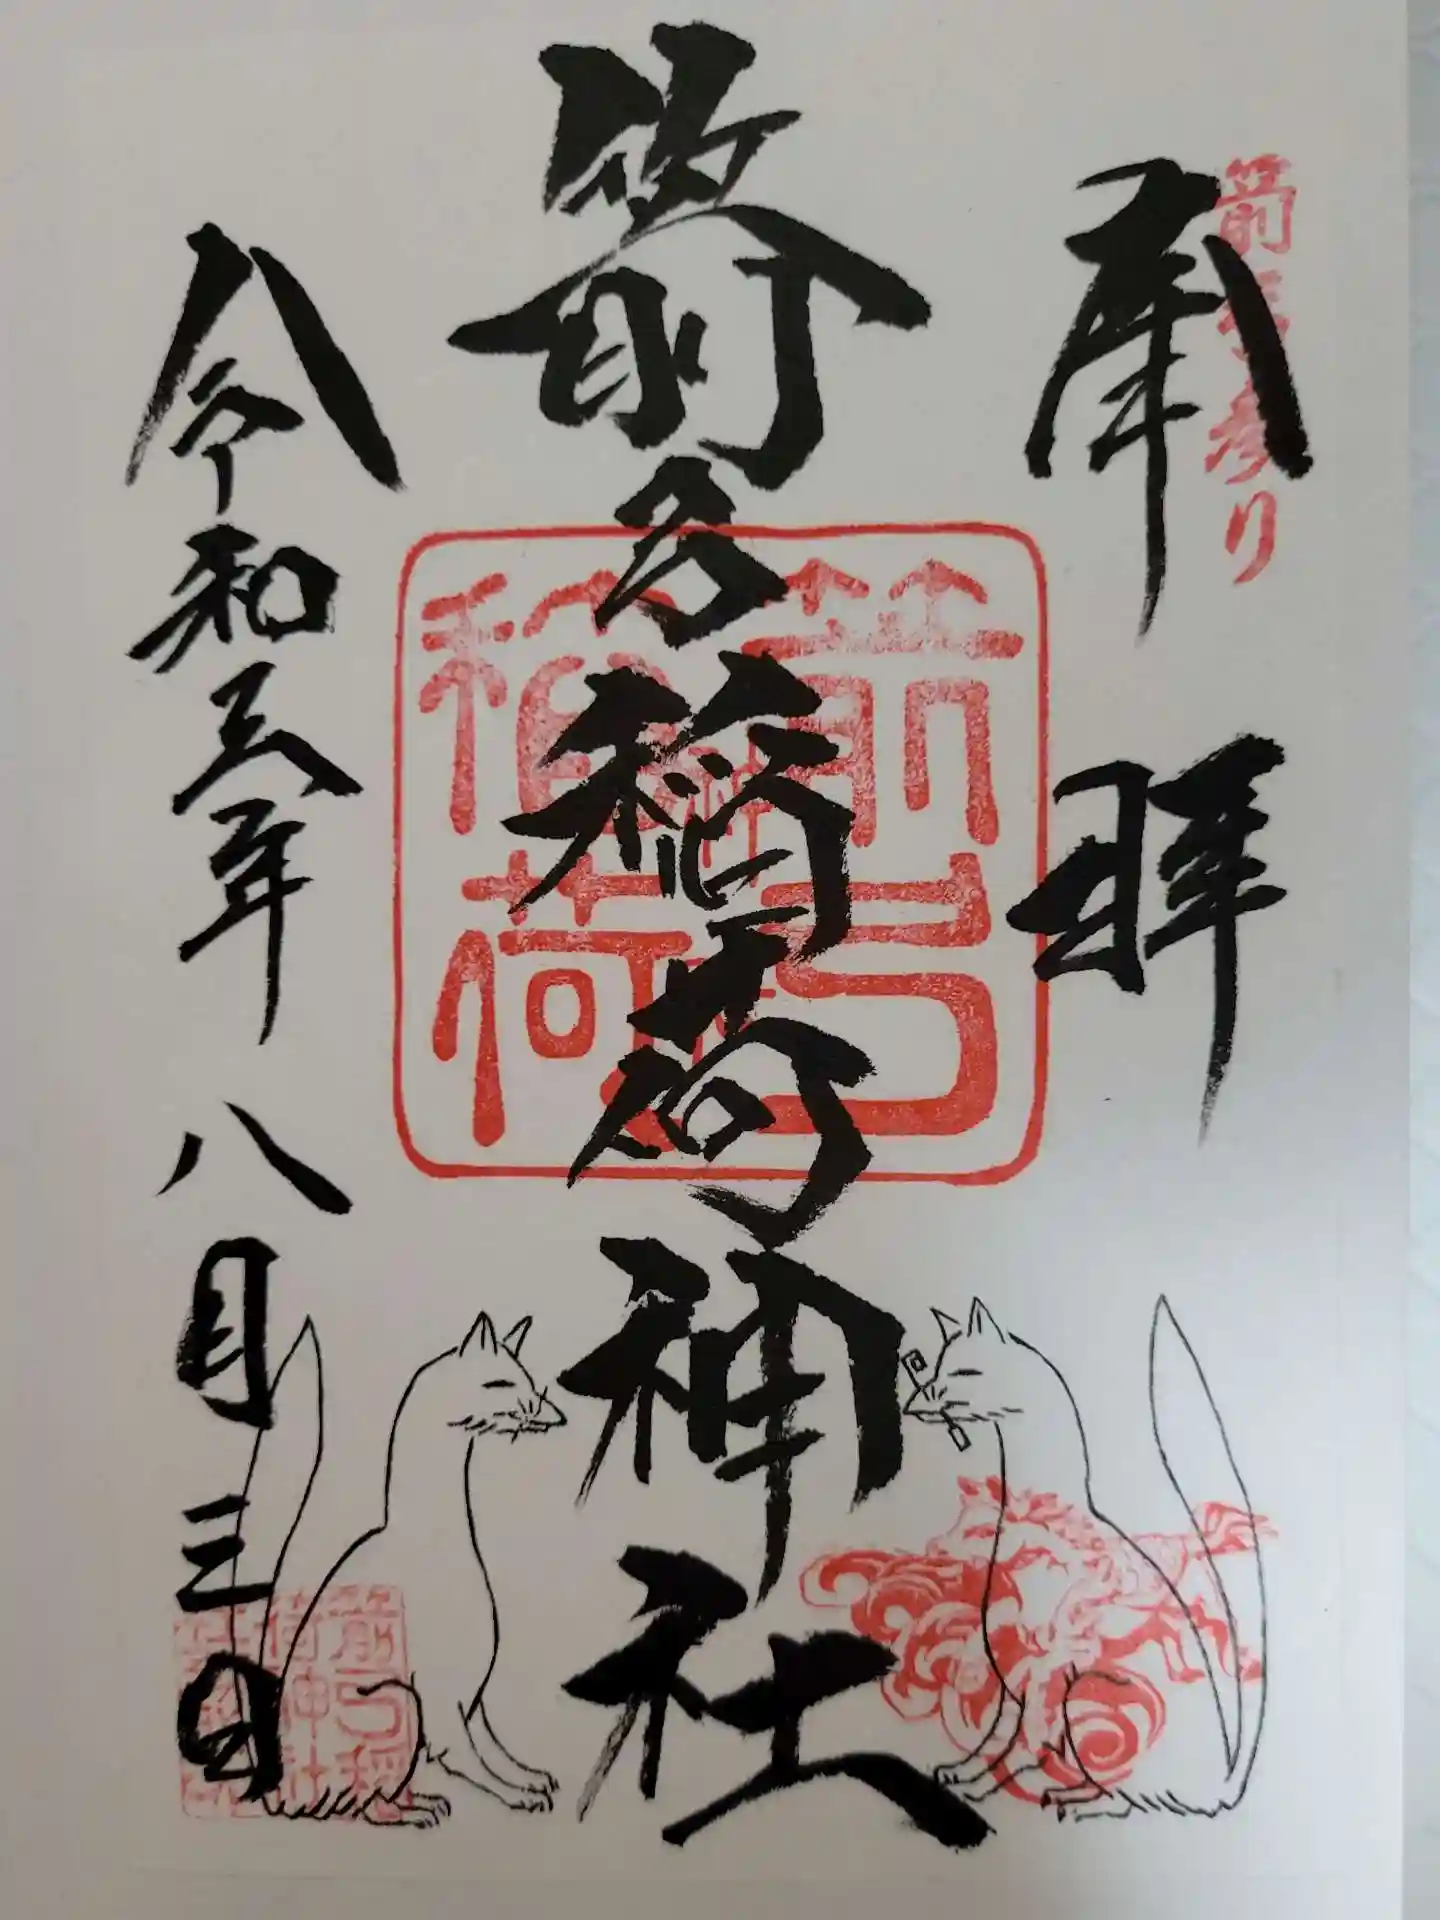 箭弓三社参り
奉拝
箭弓稲荷神社
箭弓稲荷
令和三年八月三日